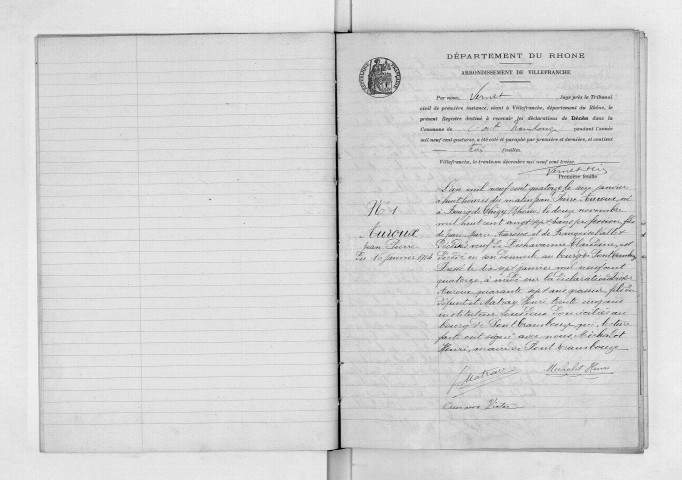 DÉPARTEMENT DU RHONE
ARRONDISSEMENT DE VILLEFRANCHE
Par nous, Vernet Juge près le Tribunal
civil de première instance, séant à Villefranche, département du Rhône, le
présent Registre destiné à recevoir les déclarations de Décès dans la
Commune de Pont Trambouze pendant l'année
mil neuf cent quatorze, a été coté et paraphé par première et dernière, et contient
feuilles.
Villefranche, le trente-un décembre mil neuf cent treize.
Première feuille
N° 1
Auroux
Jean Pierre
16 janvier 1914
L'an mil neuf cent quatorze le seize janvier
à huit heures du matin Jean Pierre Auroux né
à Bourg de Thizy Rhône, le douze novembre
mil huit cent vingt sept sans profession, fils
de Jean Marie Auroux et de Françoise
Décédés veuf de Dechavanne Claudine, est
décédé en son domicile au bourg de Pont Trambouze
Dressé le dix sept janvier mil neuf cent
quatorze, à midi sur la déclaration de
Auroux quarante sept ans, fils du
défunt et Matray Henri trente cinq ans
instituteur tous deux domiciliés au
bourg de Pont Trambouze qui, lecture
faite ont signé avec nous Michalot
Henri, maire de Pont Trambouze
Matray
Michalot Henri
Auroux Victor